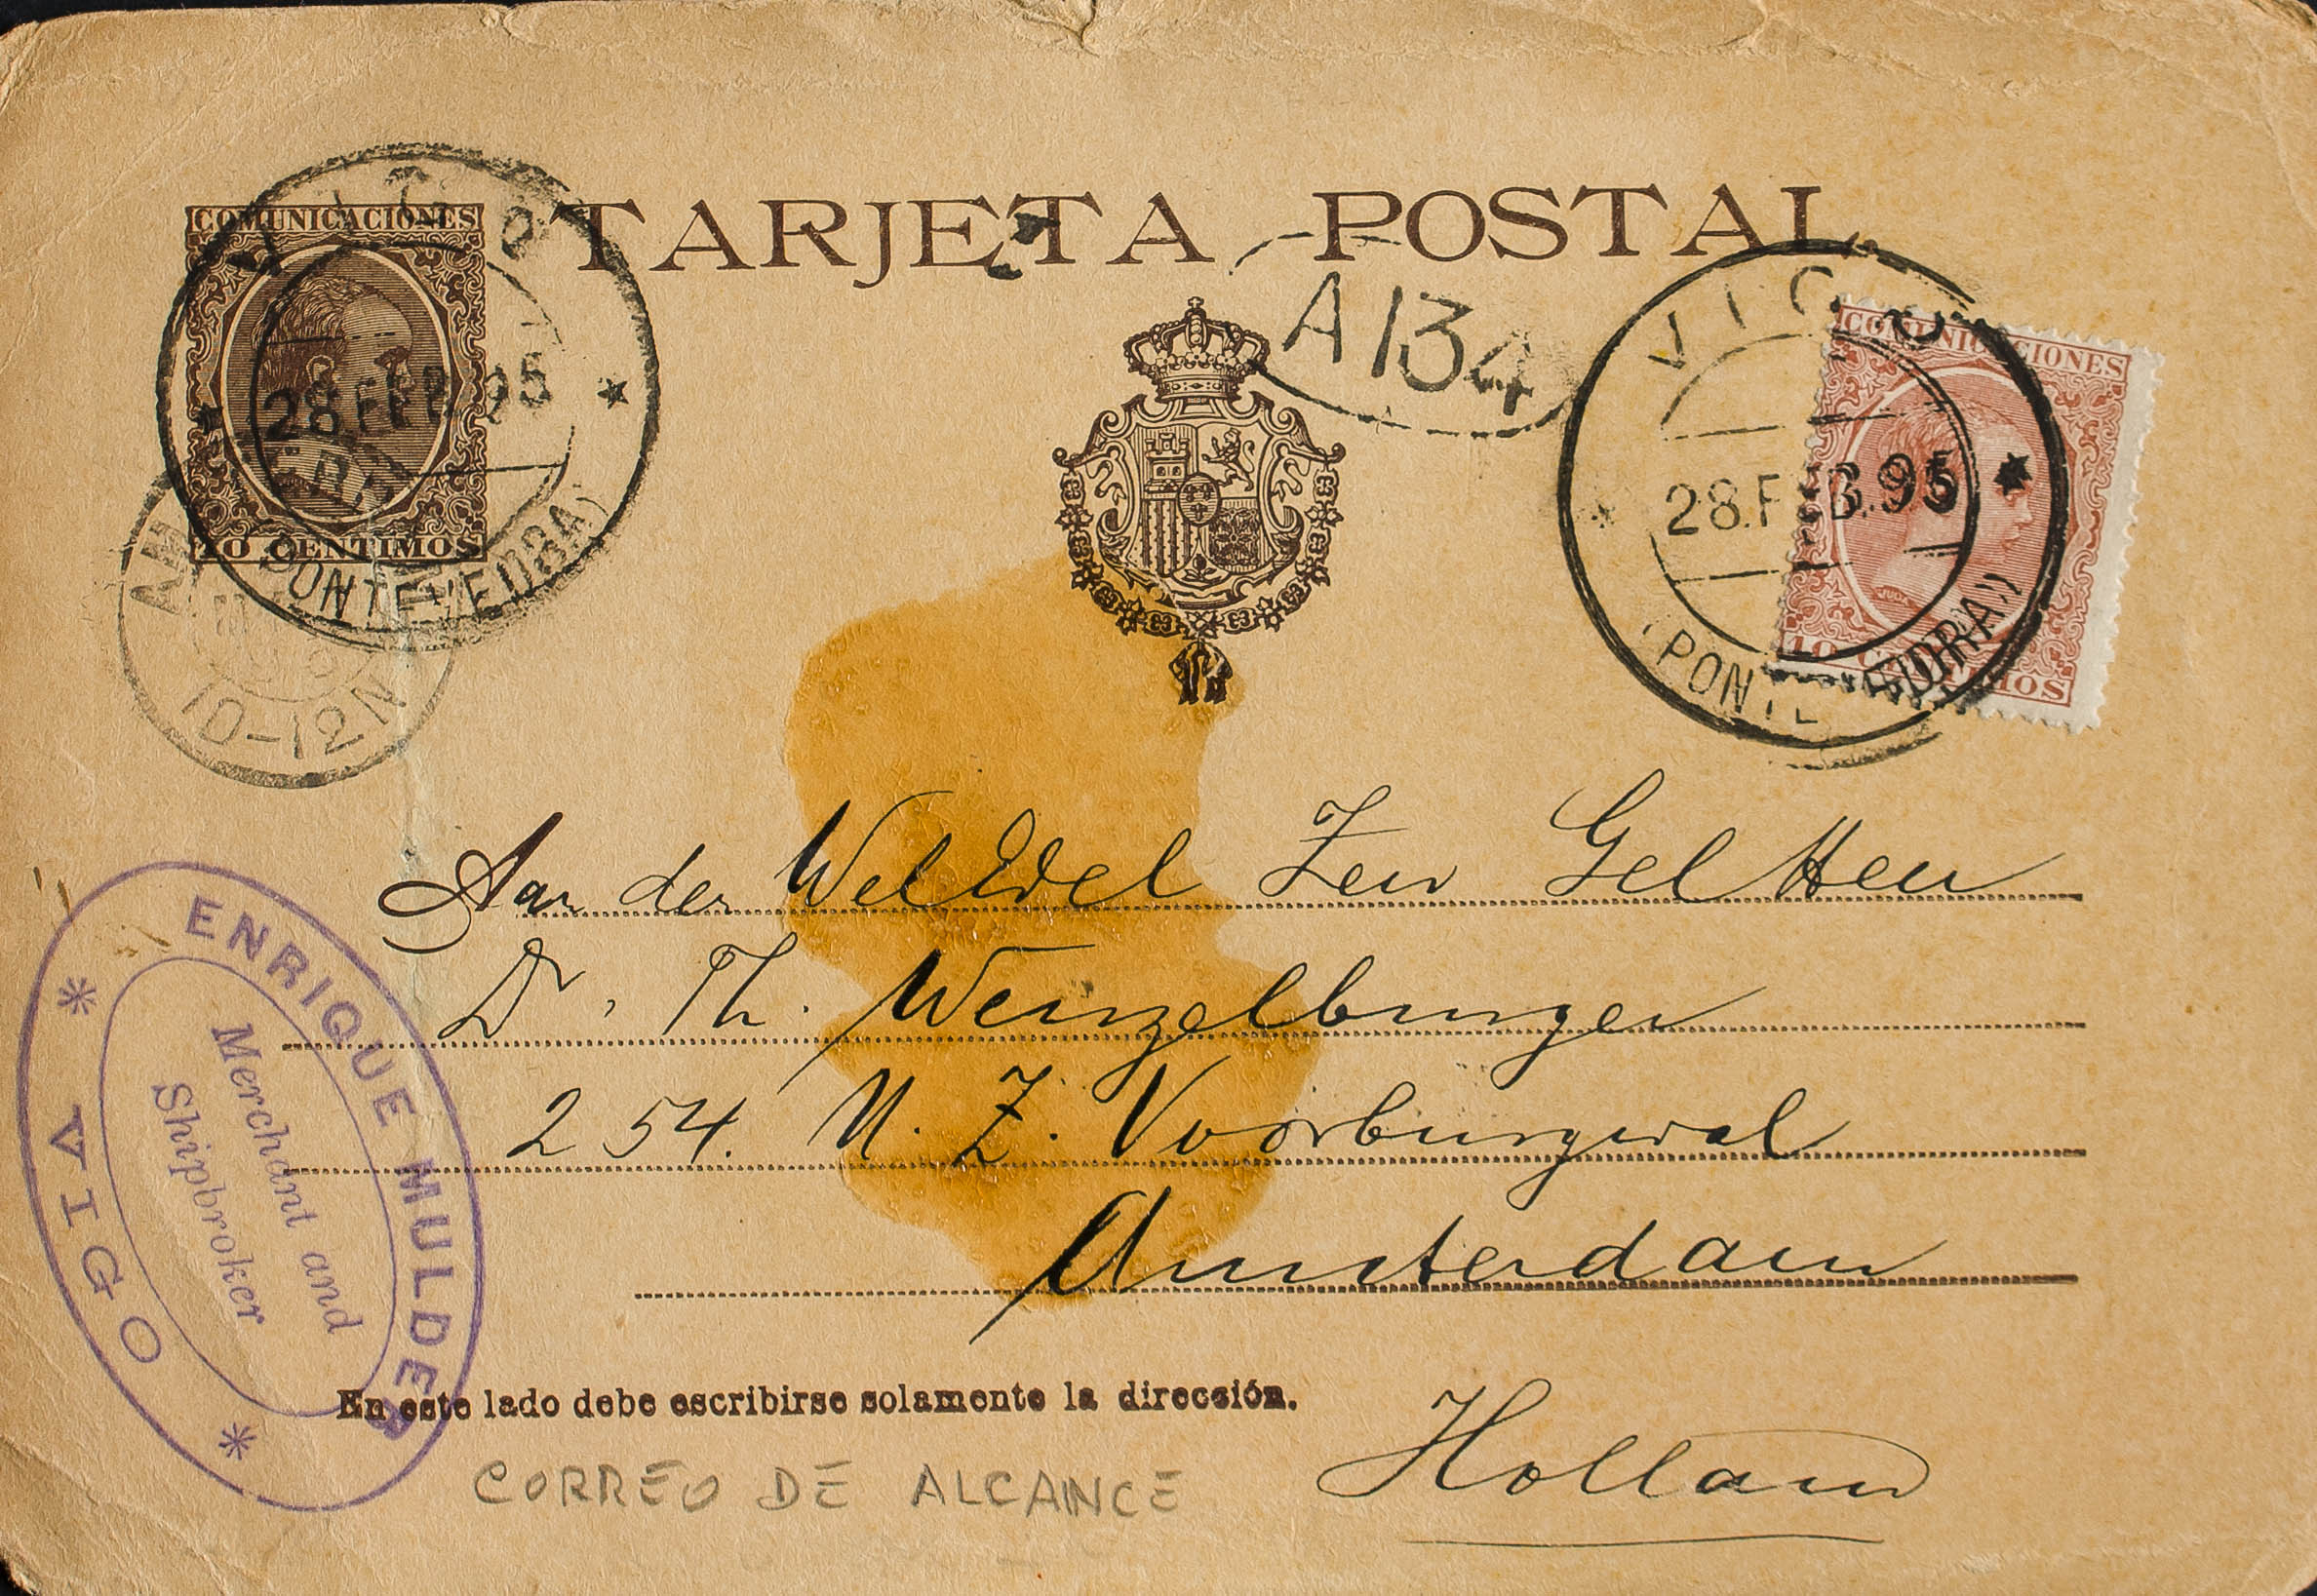 TARJETA POSTAL
COMUNICACIONES
10 CENTIMOS
VIGO
28.FEB.95
(PONTEVEDRA)
A 134
VIGO
28.FEB.95
(PONTEVEDRA)
COMUNICACIONES
10 CENTIMOS
10-12N
Aan den WelEdel Zeer Gel Heer
Dr. Th. Wenzelburger
254. N. Z. Voorburgwal
Amsterdam
ENRIQUE MULDER
Merchant and
Shipbroker
* VIGO *
En este lado debe escribirse solamente la dirección.
CORREO DE ALCANCE
Holland